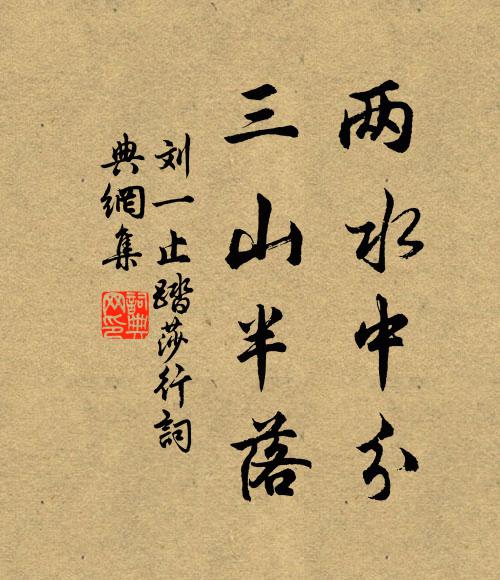 两水中分
三山半落
刘一止踏莎行詞
典網集
詞典網印